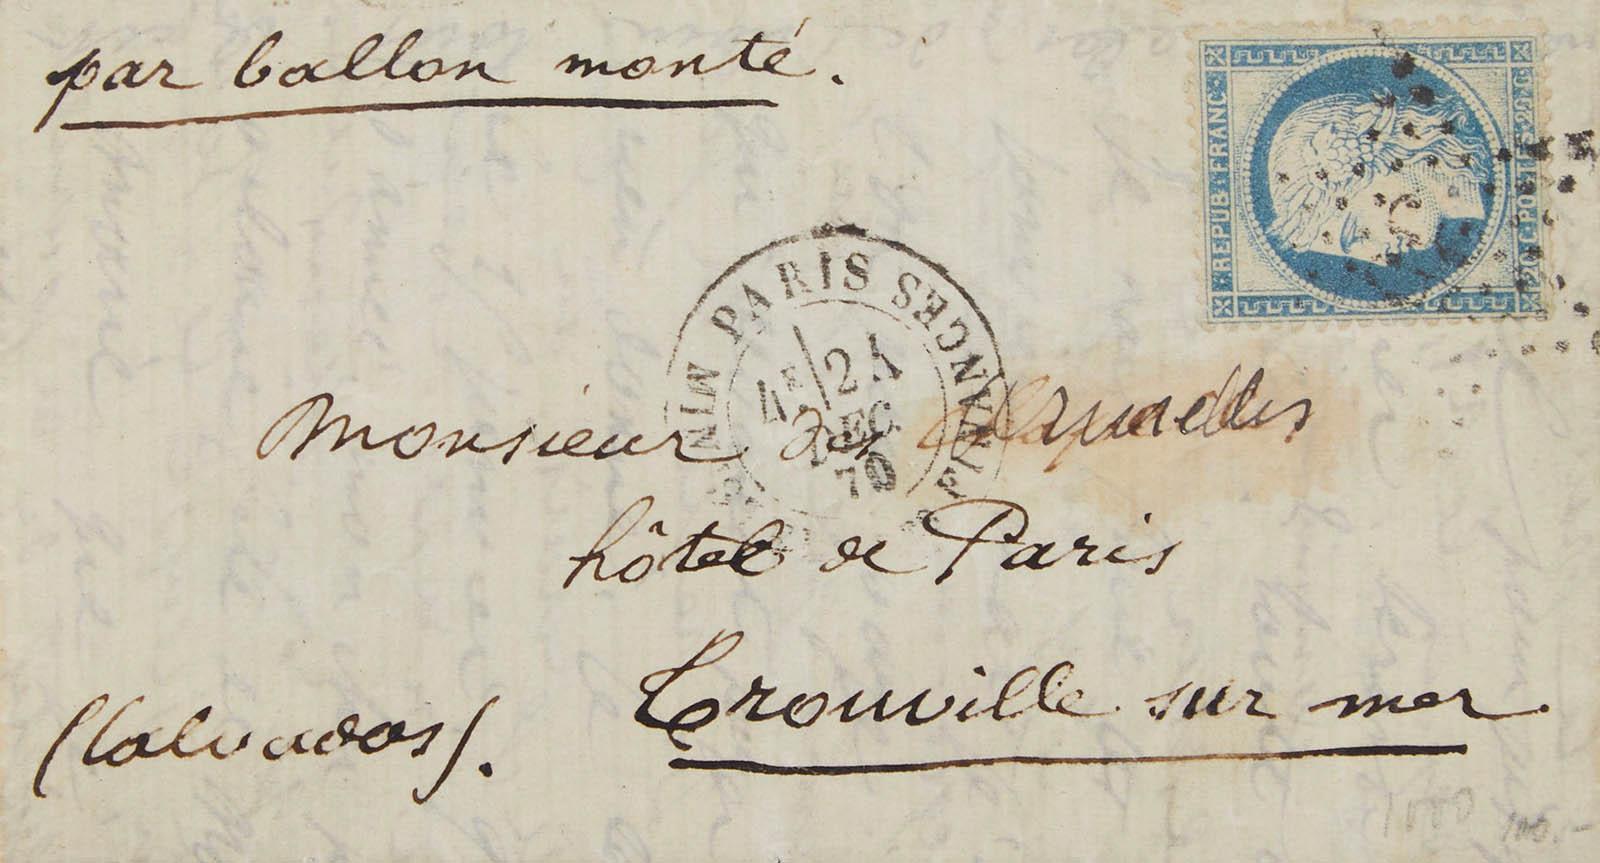 par ballon monté.
REPUB · FRANC ·
20 C · POSTES · 20 C
PARIS
MIN FINANCES
4E 24
DEC.
70
Monsieur des
hôtel de Paris
Trouville sur mer.
(Calvados).
1000 100.-